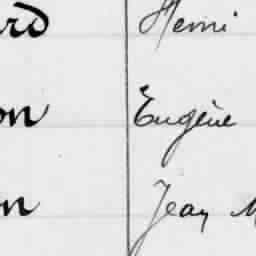 rd Henri
on Eugène
n Jean M